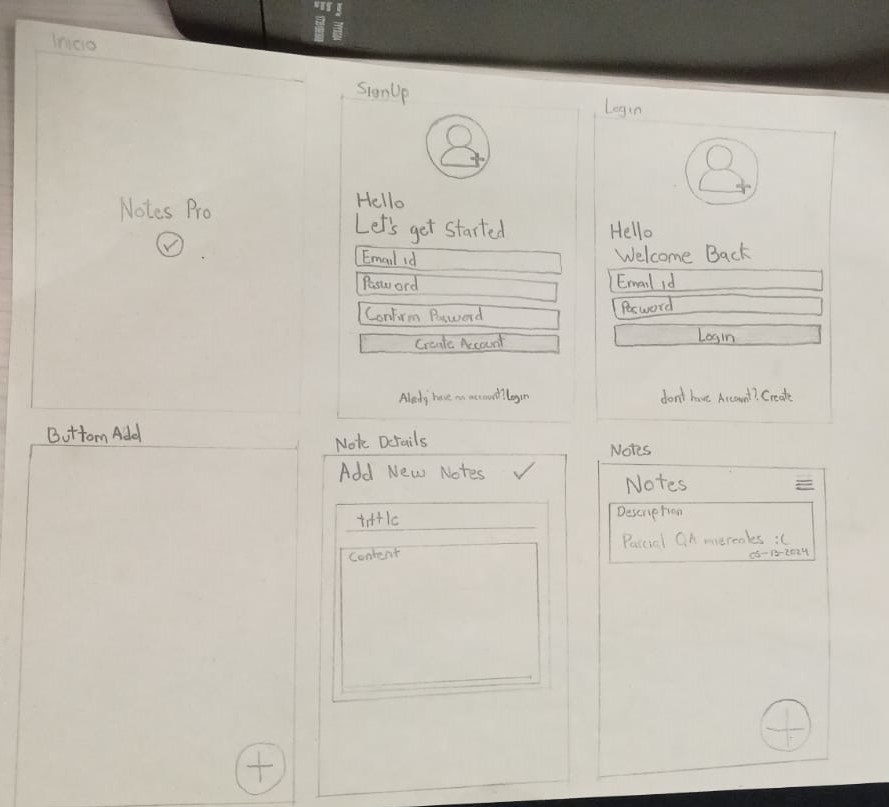 Inicio
Notes Pro
SignUp
Hello
Let's get Started
Email id
Password
Confirm Password
Create Account
have account? Login
Login
Hello
Welcome Back
Email id
Password
Login
dont have Account? Create
Buttom Add
Note Details
Add New Notes
tittle
Content
Notes
Notes
Description
Parcial QA miercoles :(
05-13-2024